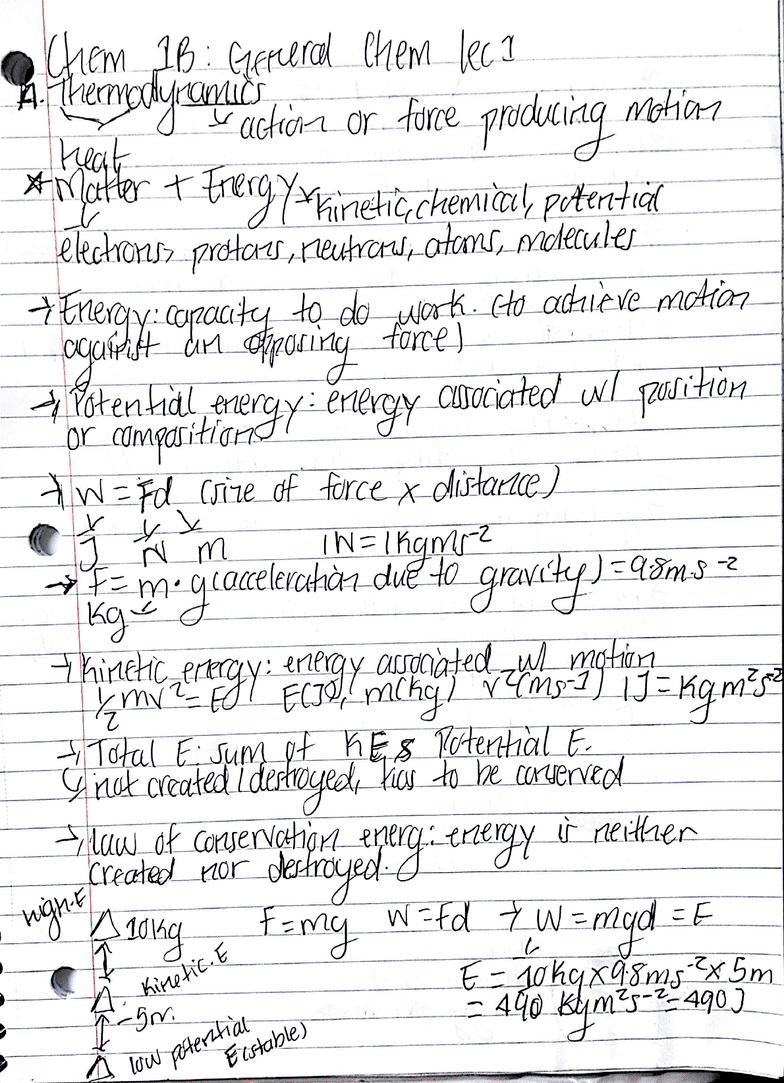 Chem 1B: General Chem lec 1
A. Thermodynamics
↳ action or force producing motion
heat
* Matter + Energy → kinetic, chemical, potential
electrons, protons, neutrons, atoms, molecules
→ Energy: capacity to do work. (to achieve motion
against an opposing force)
→ Potential energy: energy associated w/ position
or composition
→ W = Fd (size of force x distance)
J N m 1N = 1kgms⁻²
→ F = m · g (acceleration due to gravity) = 9.8m.s⁻²
kg
→ kinetic energy: energy associated w/ motion
1/2 mv² = E E(J), m(kg) v²(ms⁻¹) 1J = kgm²s⁻²
→ Total E: sum of KE & Potential E.
↳ not created/destroyed, has to be conserved
→ law of conservation energ: energy is neither
created nor destroyed.
High.E
10kg F=mg W=Fd → W=mgd = E
Kinetic.E
E = 10kg x 9.8ms⁻² x 5m
-5m.
= 490 kgm²s⁻² = 490J
low potential
E(stable)